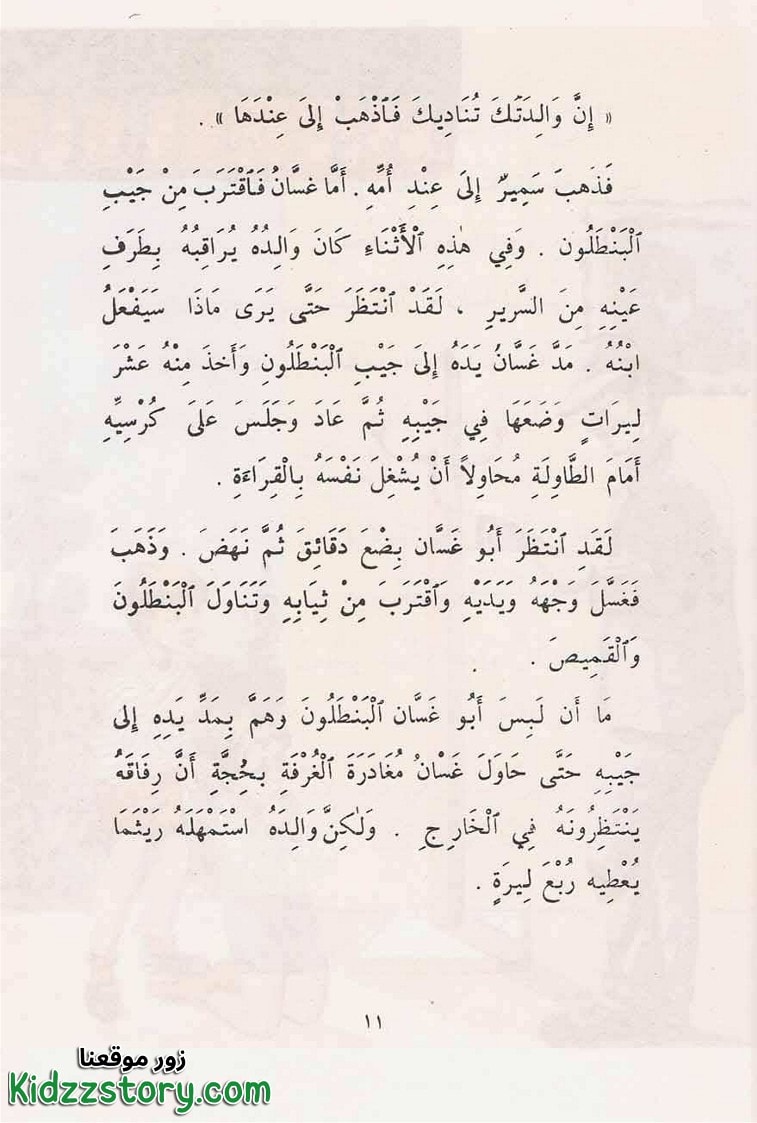 « إِنَّ وَالِدَتَكَ تُنَادِيكَ فَٱذْهَبْ إِلَى عِنْدَهَا » .
فَذَهبَ سَمِيرٌ إِلَى عِنْدِ أُمِّهِ . أَمَّا غسَّانُ فَٱقْتَرَبَ مِنْ جَيْبِ
ٱلْبَنْطَلُون . وَفِي هٰذِهِ ٱلْأَثْنَاءِ كَانَ وَالِدُهُ يُرَاقِبُهُ بِطَرَفِ
عَيْنِهِ مِنَ السَّرِيرِ ، لَقَدْ ٱنْتَظَرَ حَتَّى يَرَى مَاذَا سَيَفْعَلُ
ابْنُهُ . مَدَّ غَسَّانُ يَدَهُ إِلَى جَيْبِ ٱلْبَنْطَلُونِ وَأَخذَ مِنْهُ عَشْرَ
لِيرَاتٍ وَضَعَهَا فِي جَيْبِهِ ثُمَّ عَادَ وَجَلَسَ عَلَى كُرْسِيِّهِ
أَمَامَ الطَّاوِلَةِ مُحَاوِلاً أَنْ يُشْغِلَ نَفْسَهُ بِالْقِرَاءَةِ .
لَقَدِ ٱنْتَظَرَ أَبُو غَسَّان بِضْعَ دَقَائِقَ ثُمَّ نَهَضَ . وَذَهَبَ
فَغَسَّلَ وَجْهَهُ وَيَدَيْهِ وَٱقْتَرَبَ مِنْ ثِيَابِهِ وَتَنَاوَلَ ٱلْبَنْطَلُونَ
وَٱلْقَمِيصَ .
مَا أَن لَبِسَ أَبُو غَسَّان ٱلْبَنْطَلُونَ وَهَمَّ بِمَدِّ يَدِهِ إِلى
جَيْبِهِ حَتَّى حَاوَلَ غَسْانُ مُغَادَرَةَ ٱلْغُرْفَةِ بِحُجَّةِ أَنَّ رِفَاقَهُ
يَنْتَظِرُونَهُ فِي ٱلْخَارِجِ . وَلٰكِنَّ وَالِدَهُ اسْتَمْهَلَهُ رَيْثَمَا
يُعْطِيه رُبْعَ لِيرَةٍ .
١١
زور موقعنا
Kidzzstory.com